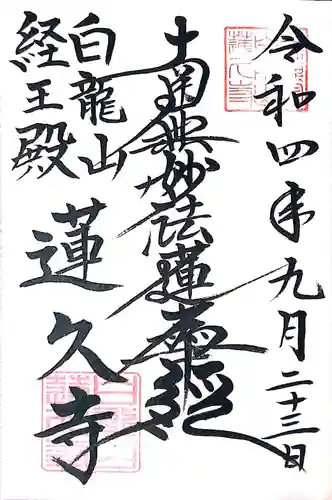 令和四年九月二十三日
南無妙法蓮華経
白龍山
経王殿
蓮久寺